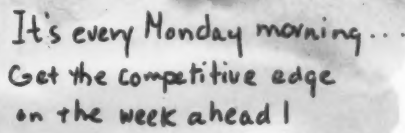 It's every Monday morning...
Get the competitive edge
on the week ahead!